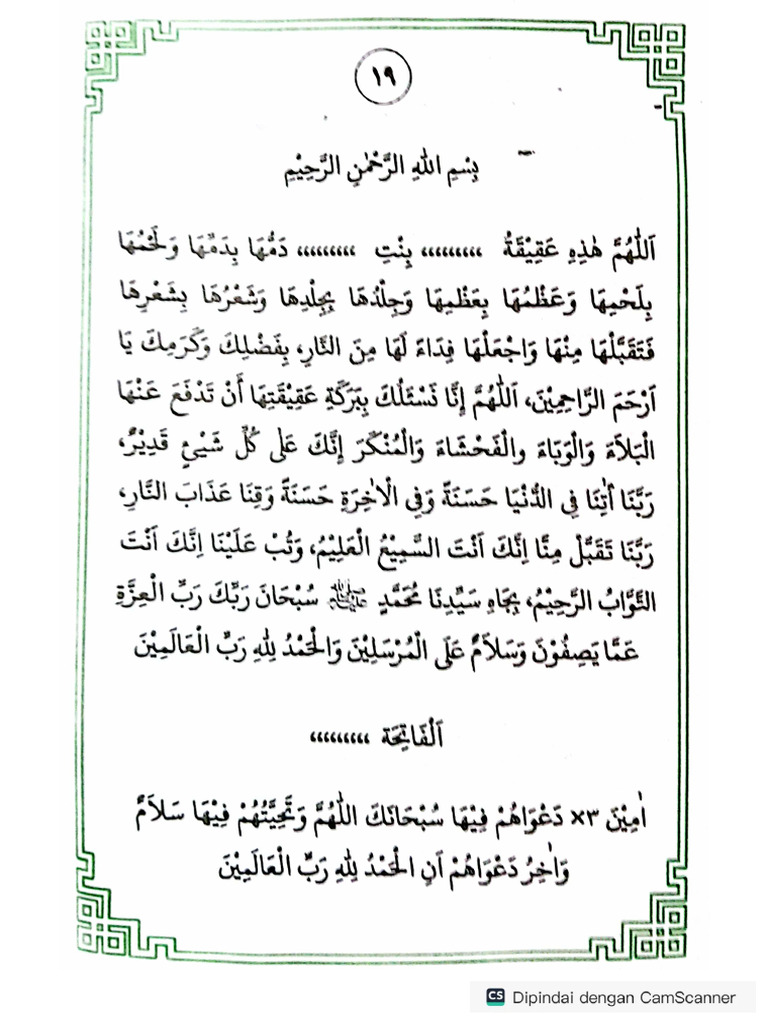 ١٩
بِسْمِ اللهِ الرَّحْمٰنِ الرَّحِيْمِ
اَللّٰهُمَّ هٰذِهِ عَقِيْقَةُ ،،،،،،،،، بِنْتِ ،،،،،،،،، دَمُّهَا بِدَمِّهَا وَلَحْمُهَا
بِلَحْمِهَا وَعَظْمُهَا بِعَظْمِهَا وَجِلْدُهَا بِجِلْدِهَا وَشَعْرُهَا بِشَعْرِهَا
فَتَقَبَّلْهَا مِنْهَا وَاجْعَلْهَا فِدَاءً لَهَا مِنَ النَّارِ، بِفَضْلِكَ وَكَرَمِكَ يَا
اَرْحَمَ الرَّاحِمِيْنَ، اَللّٰهُمَّ إِنَّا نَسْئَلُكَ بِبَرَكَةِ عَقِيْقَتِهَا أَنْ تَدْفَعَ عَنْهَا
الْبَلَاءَ وَالْوَبَاءَ والْفَحْشَاءَ وَالْمُنْكَرَ إِنَّكَ عَلٰى كُلِّ شَيْئٍ قَدِيْرٌ،
رَبَّنَا أٰتِنَا فِى الدُّنْيَا حَسَنَةً وَفِى الْاٰخِرَةِ حَسَنَةً وَقِنَا عَذَابَ النَّارِ،
رَبَّنَا تَقَبَّلْ مِنَّا اِنَّكَ اَنْتَ السَّمِيْعُ الْعَلِيْمُ، وَتُبْ عَلَيْنَا اِنَّكَ اَنْتَ
التَّوَّابُ الرَّحِيْمُ، بِجَاهِ سَيِّدِنَا مُحَمَّدٍ ﷺ سُبْحَانَ رَبِّكَ رَبِّ الْعِزَّةِ
عَمَّا يَصِفُوْنَ وَسَلَامٌ عَلَى الْمُرْسَلِيْنَ وَالْحَمْدُ لِلهِ رَبِّ الْعَالَمِيْنَ
اَلْفَاتِحَة ،،،،،،،،،
اٰمِيْنَ ٣× دَعْوَاهُمْ فِيْهَا سُبْحَانَكَ اللّٰهُمَّ وَتَحِيَّتُهُمْ فِيْهَا سَلَامٌ
وَاٰخِرُ دَعْوَاهُمْ اَنِ الْحَمْدُ لِلهِ رَبِّ الْعَالَمِيْنَ
CS Dipindai dengan CamScanner